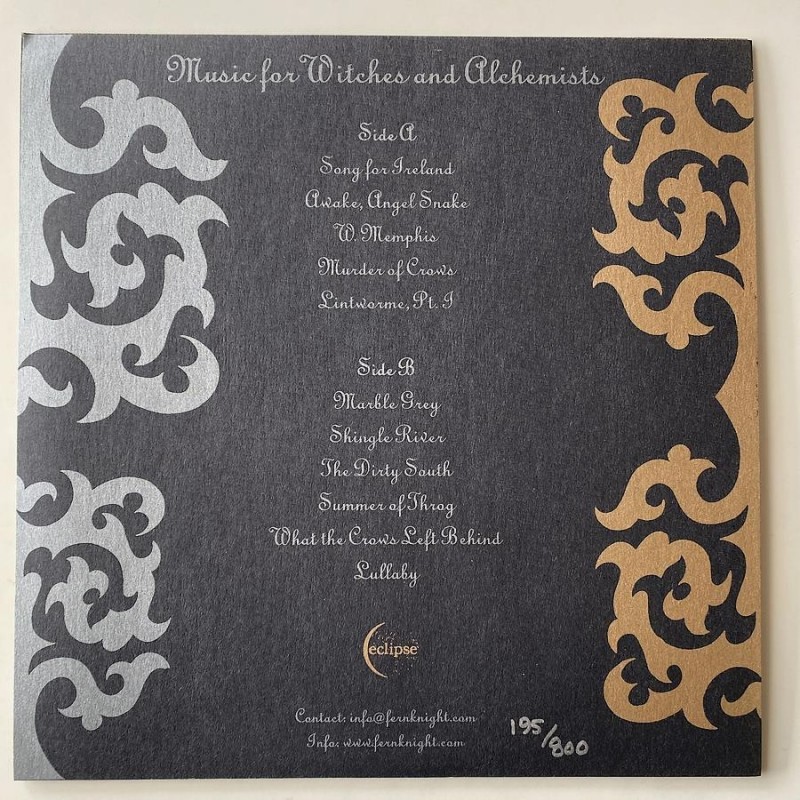 Music for Witches and Alchemists
Side A
Song for Ireland
Awake, Angel Snake
W. Memphis
Murder of Crows
Lintworme, Pt. I
Side B
Marble Grey
Shingle River
The Dirty South
Summer of Throg
What the Crows Left Behind
Lullaby
eclipse
Contact: info@fernknight.com
Info: www.fernknight.com
195/800